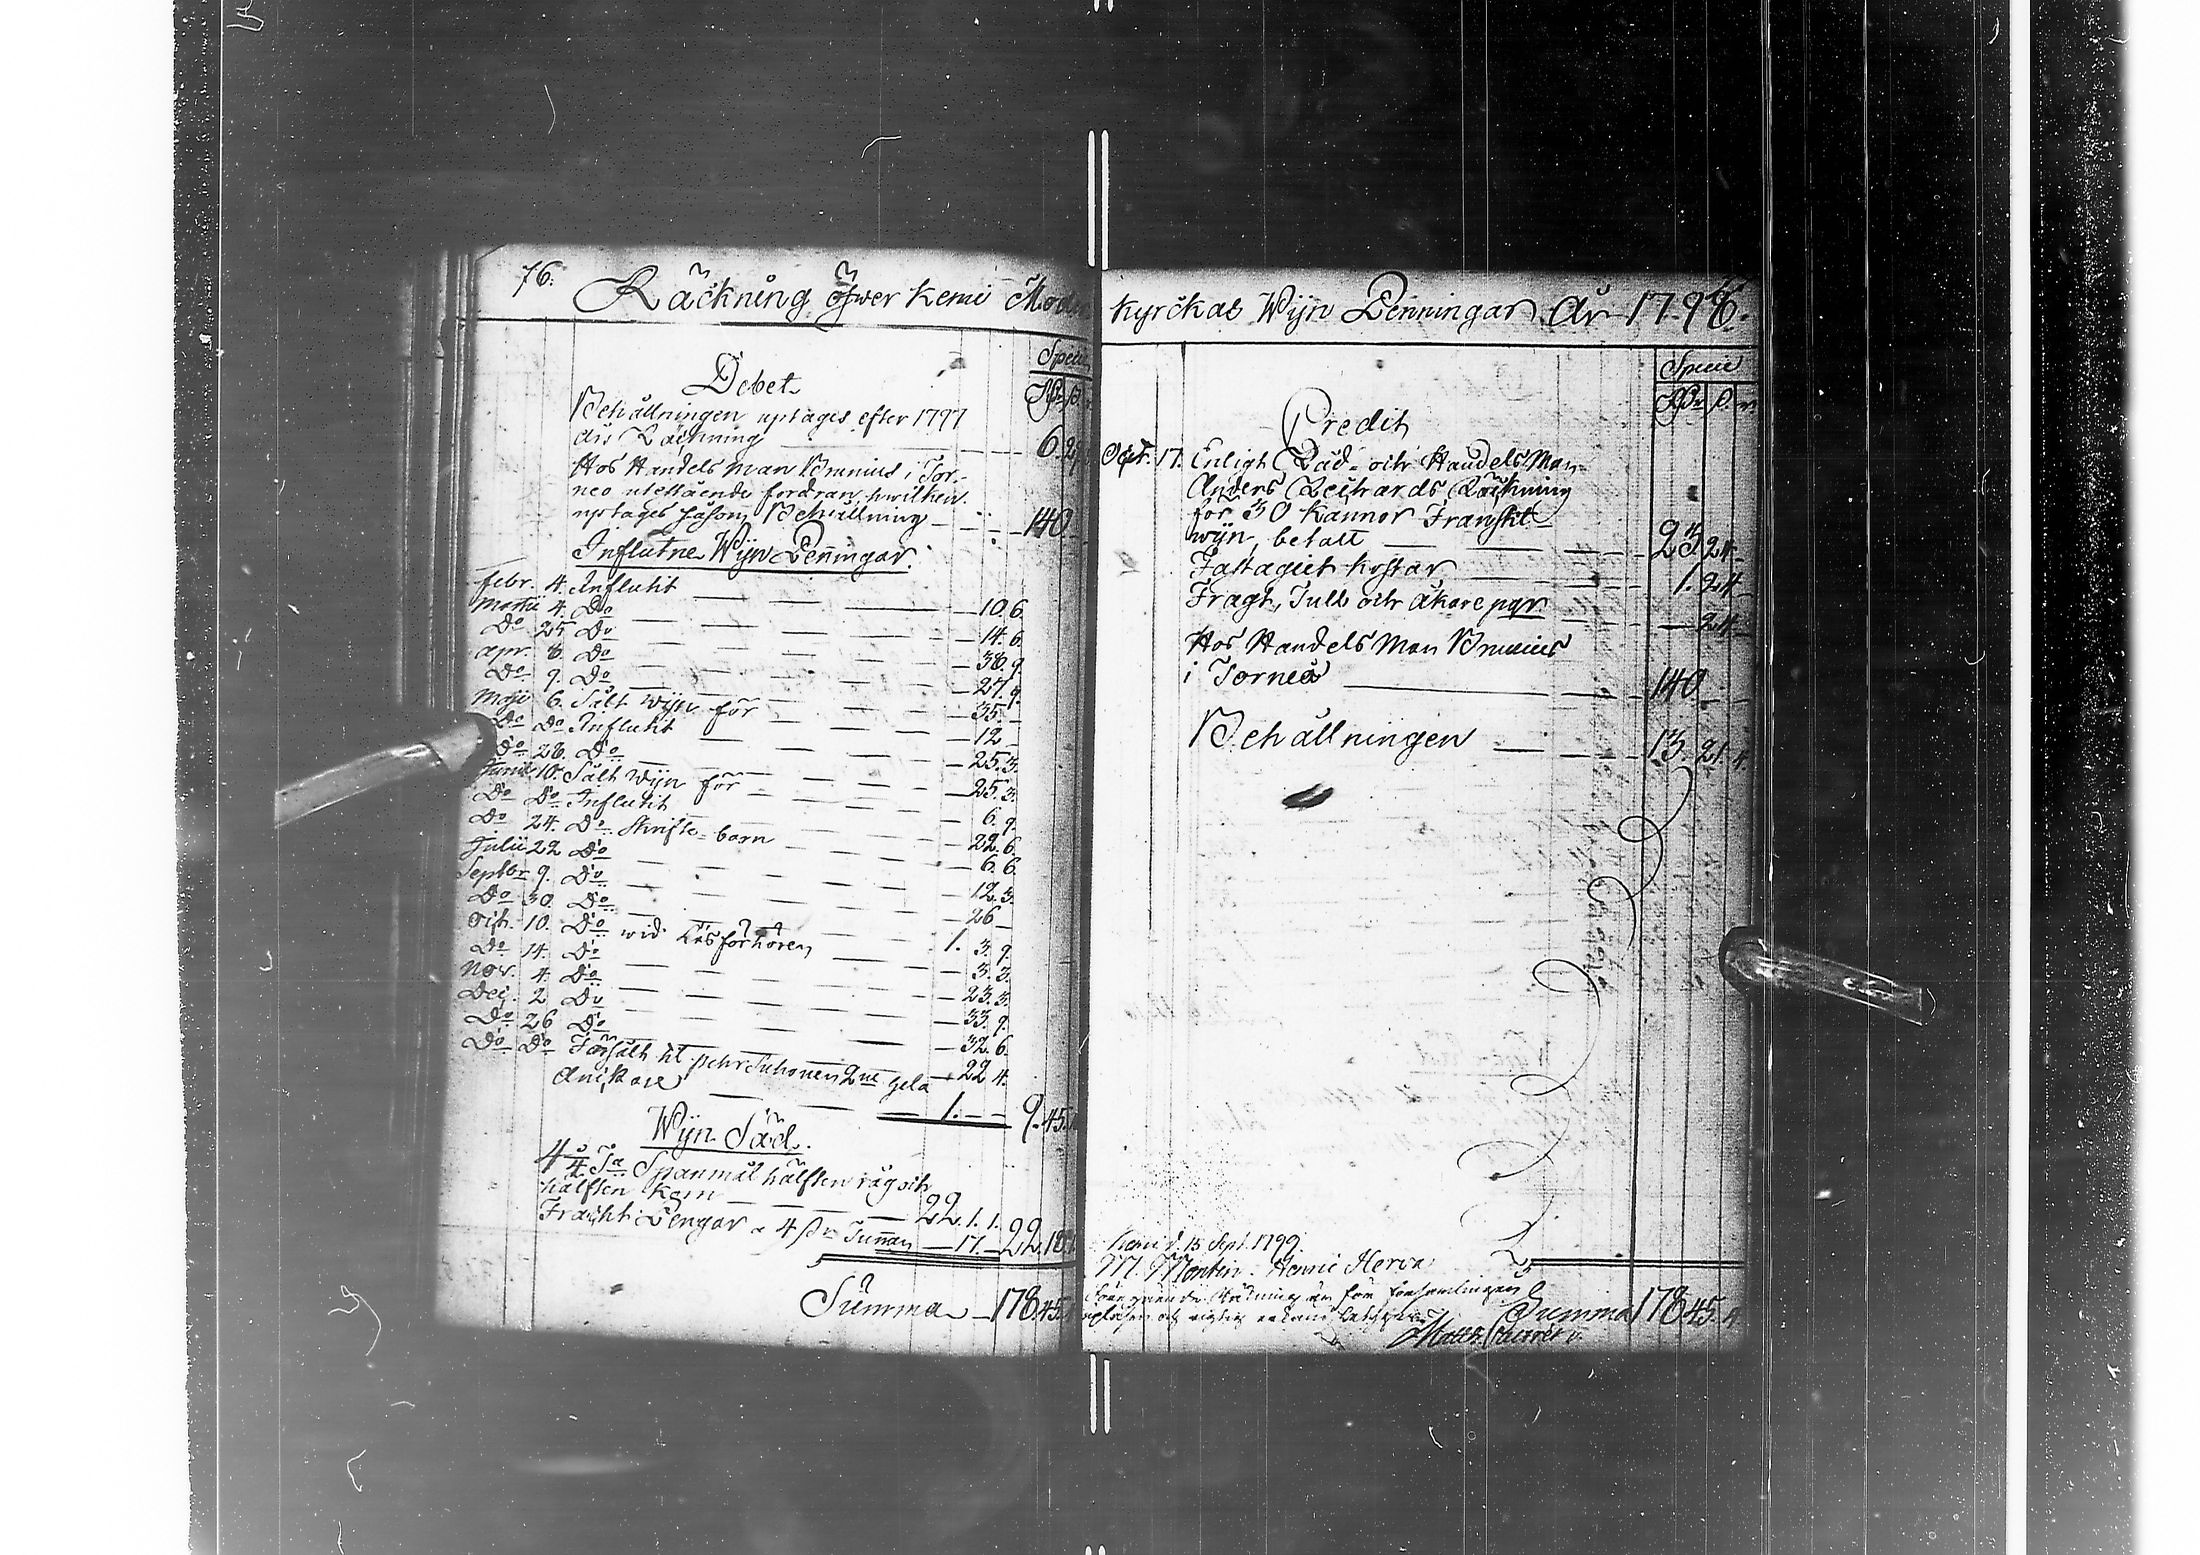 76.
Räckning öfwer Kemi Moder
Specie
Debet
Behållningen uptages efter 1797
års Räckning 6. 29
Hos Handels Man Brunius i Tor-
neo utestående fordran, hwilken
uptages såsom Behållning 140
Influtne Wijn Penningar.
Febr. 4. Influtit 10. 6.
Martii 4. Do 14. 6.
Do 25 Do 38. 9.
apr. 8. Do 27. 9.
Do 9. Do 35.
Maji 6. Sålt Wijn för 12
Do Do Influtit 25. 3.
Do 28. Do 25. 3.
Junii 10. Sålt Wijn för 6. 9.
Do Do Influtit 22. 6.
Do 24. Do Skrifte-barn 6. 6.
Julii 22 Do 12. 3.
Septbr 9. Do 26
Do 30. Do
Oct. 10. Do wid Läsförhören 1. 3. 9.
Do 14. Do 3. 3.
Nov. 4. Do 23. 3.
Dec. 2 Do 33. 9.
Do 26 Do 32. 6.
Do Do Försålt til Pehr 2ne hela 22. 4.
Ankare 1. 9. 45.
Wijn Säd.
4 Ta Spanmål hälften råg och
hälften Korn 22. 1. 1.
Fracht Pengar a 4 s Tunnan 17. 22. 18.
Summa 178. 45.
Kyrckas Wijn Penningar År 1798.
Specie
Credit
Oct. 17. Enligt Råd- och Handels Man
Anders Reichards Räckning
för 30 Kannor Franskt
wijn, betalt 23. 24
Fastaget kostar 1. 24
Fragt, Tull och Åkare pgr 24
Hos Handels Man Brunius
i Torneå 140
Behållningen 13. 21. 4.
Kemi d. 15 Sept. 1799.
M. Montin. Henric Herva
Summa 178. 45. 4.